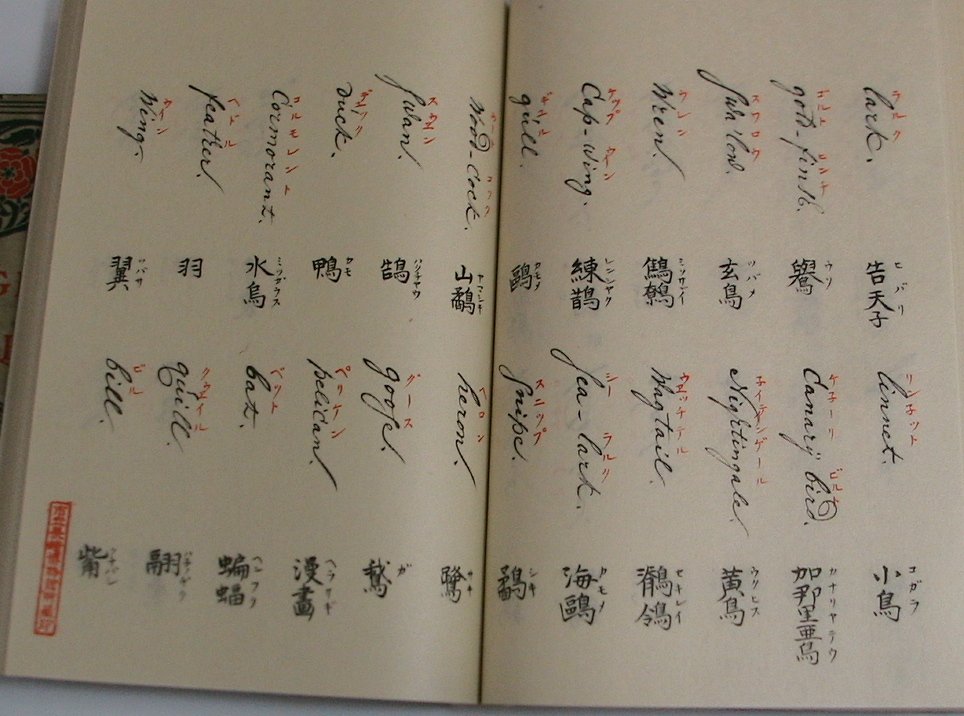 lark. ラルク 告天子 ヒバリ
linnet. リンネット 小鳥 コガラ
gold-finch. ゴルト フィンチ 鷽 ウソ
Canary bird. ケネーリ ビルド 加那里亜鳥 カナリヤテウ
Swallow. スワロウ 玄鳥 ツバメ
Nightingale. ネイテンゲール 黄鳥 ウクヒス
Wren. ウレン 鷦鷯 ミソサザイ
Wagtail. ウェッチテール 鶺鴒 セキレイ
Cap-wing. ケップ ウィン 練鵲 レンジャク
Sea-lark. シー ラルリ 海鷗 カモメ
gull. 鷗 カモメ
Snipe. スニップ 鷸 シギ
Wood-cock. 山鷸 ヤマシギ
heron. ヘロン 鷺 サギ
Swan. スウィン 鵠 ハクチヤウ
goose. グース 鵞 ガ
duck. 鴨 カモ
pelican. ペリケン 漫畫 ヘラサギ
Cormorant. コルモレント 水烏 ミツガラス
bat. ベット 蝙蝠 ヘンフク
feather. 羽
quill. クウイール 翮
Wing. ウィン 翼 ツバサ
bill. ビル 觜 クチバシ